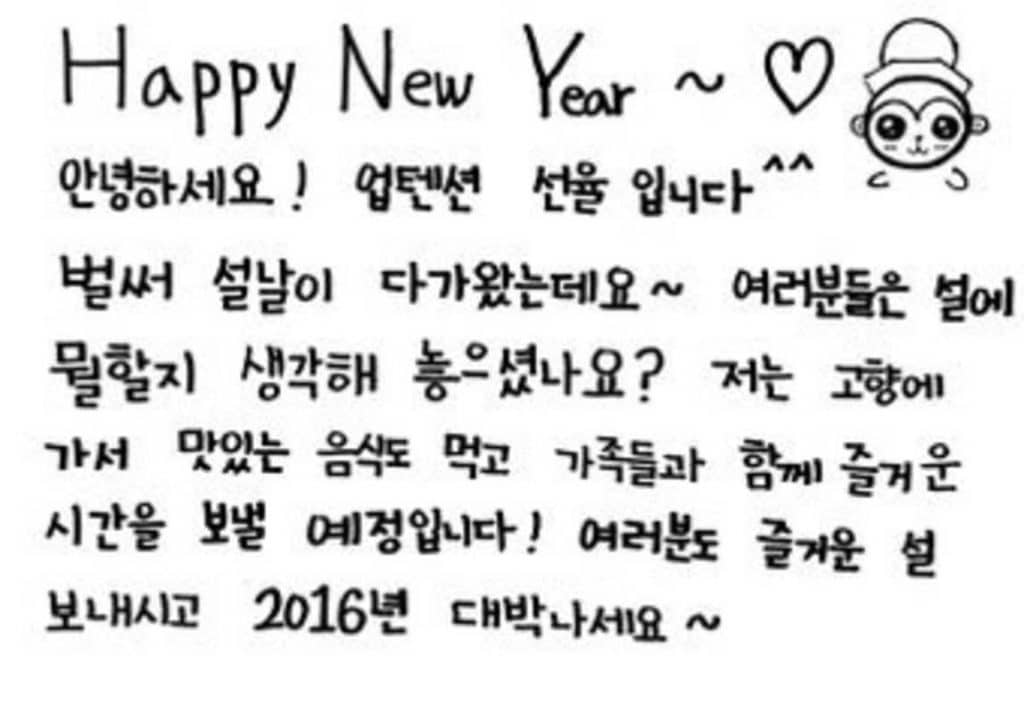 Happy New Year ~ ♡
안녕하세요! 업텐션 선율 입니다^^
벌써 설날이 다가왔는데요~ 여러분들은 설에
뭘할지 생각해 놓으셨나요? 저는 고향에
가서 맛있는 음식도 먹고 가족들과 함께 즐거운
시간을 보낼 예정입니다! 여러분도 즐거운 설
보내시고 2016년 대박나세요~